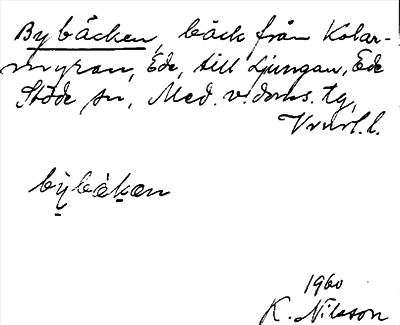 Bybäcken, bäck från Kolar-
myran, Ede, till Ljungan, Ede
Stöde sn, Med. v. doms. tg,
Vrnrl. l.
bỳbäk̬en
1960
K. Nilsson